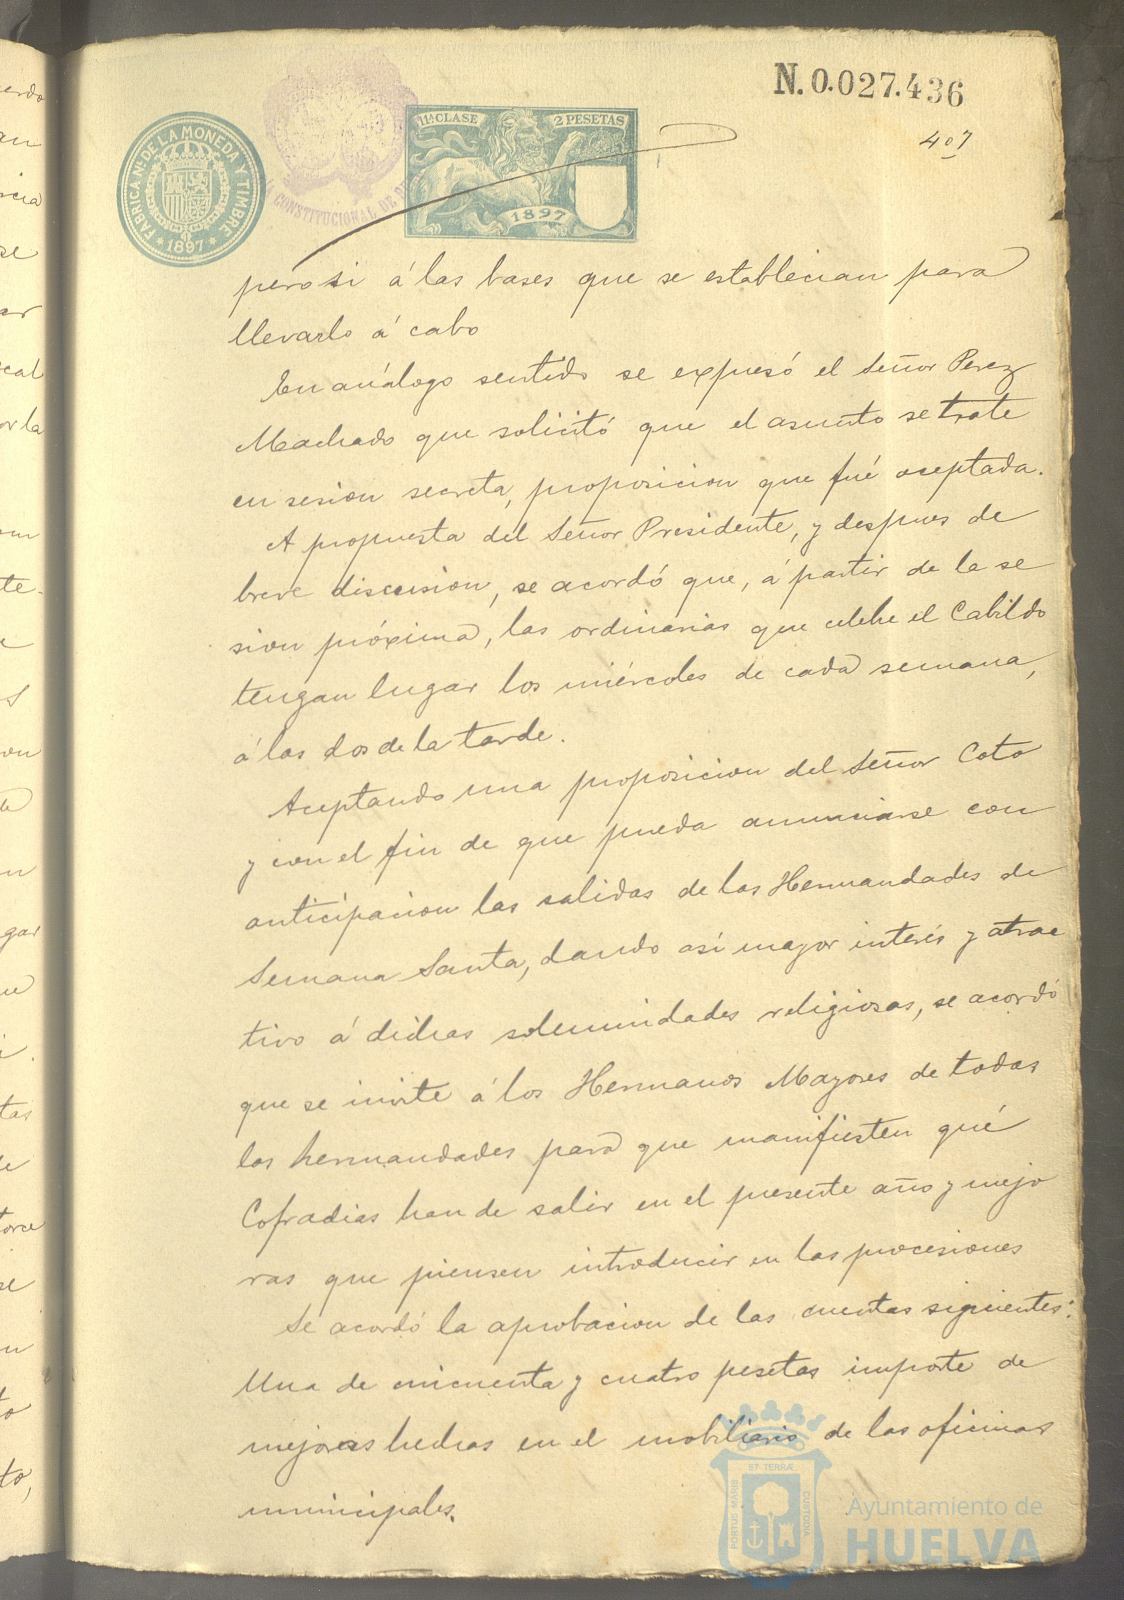 N. 0.027.436
407
FABRICA NL. DE LA MONEDA Y TIMBRE
* 1897 *
CONSTITUCIONAL DE
11ª CLASE 2 PESETAS
1897
pero si á las bases que se establecian para
llevarlo á cabo
En análogo sentido se expresó el Señor Perez
Machado que solicitó que el asunto se trate
en sesion secreta, proposicion que fué aceptada.
A propuesta del Señor Presidente, y despues de
breve discusion, se acordó que, á partir de la se
sion próxima, las ordinarias que celebre el Cabildo
tengan lugar los miércoles de cada semana,
á las dos de la tarde.
Aceptando una proposicion del Señor Coto
y con el fin de que pueda anunciarse con
anticipacion las salidas de las Hermandades de
Semana Santa, dando asi mayor interés y atrac
tivo á dichas solemnidades religiosas, se acordó
que se invite á los Hermanos Mayores de todas
las hermandades para que manifiesten qué
Cofradias han de salir en el presente año y mejo
ras que piensen introducir en las procesiones
Se acordó la aprobacion de las cuentas siguientes:
Una de cincuenta y cuatro pesetas importe de
mejoras hechas en el mobiliario de las oficinas
municipales.
PORTUS MARIS ET TERRÆ CUSTODIA
Ayuntamiento de
HUELVA